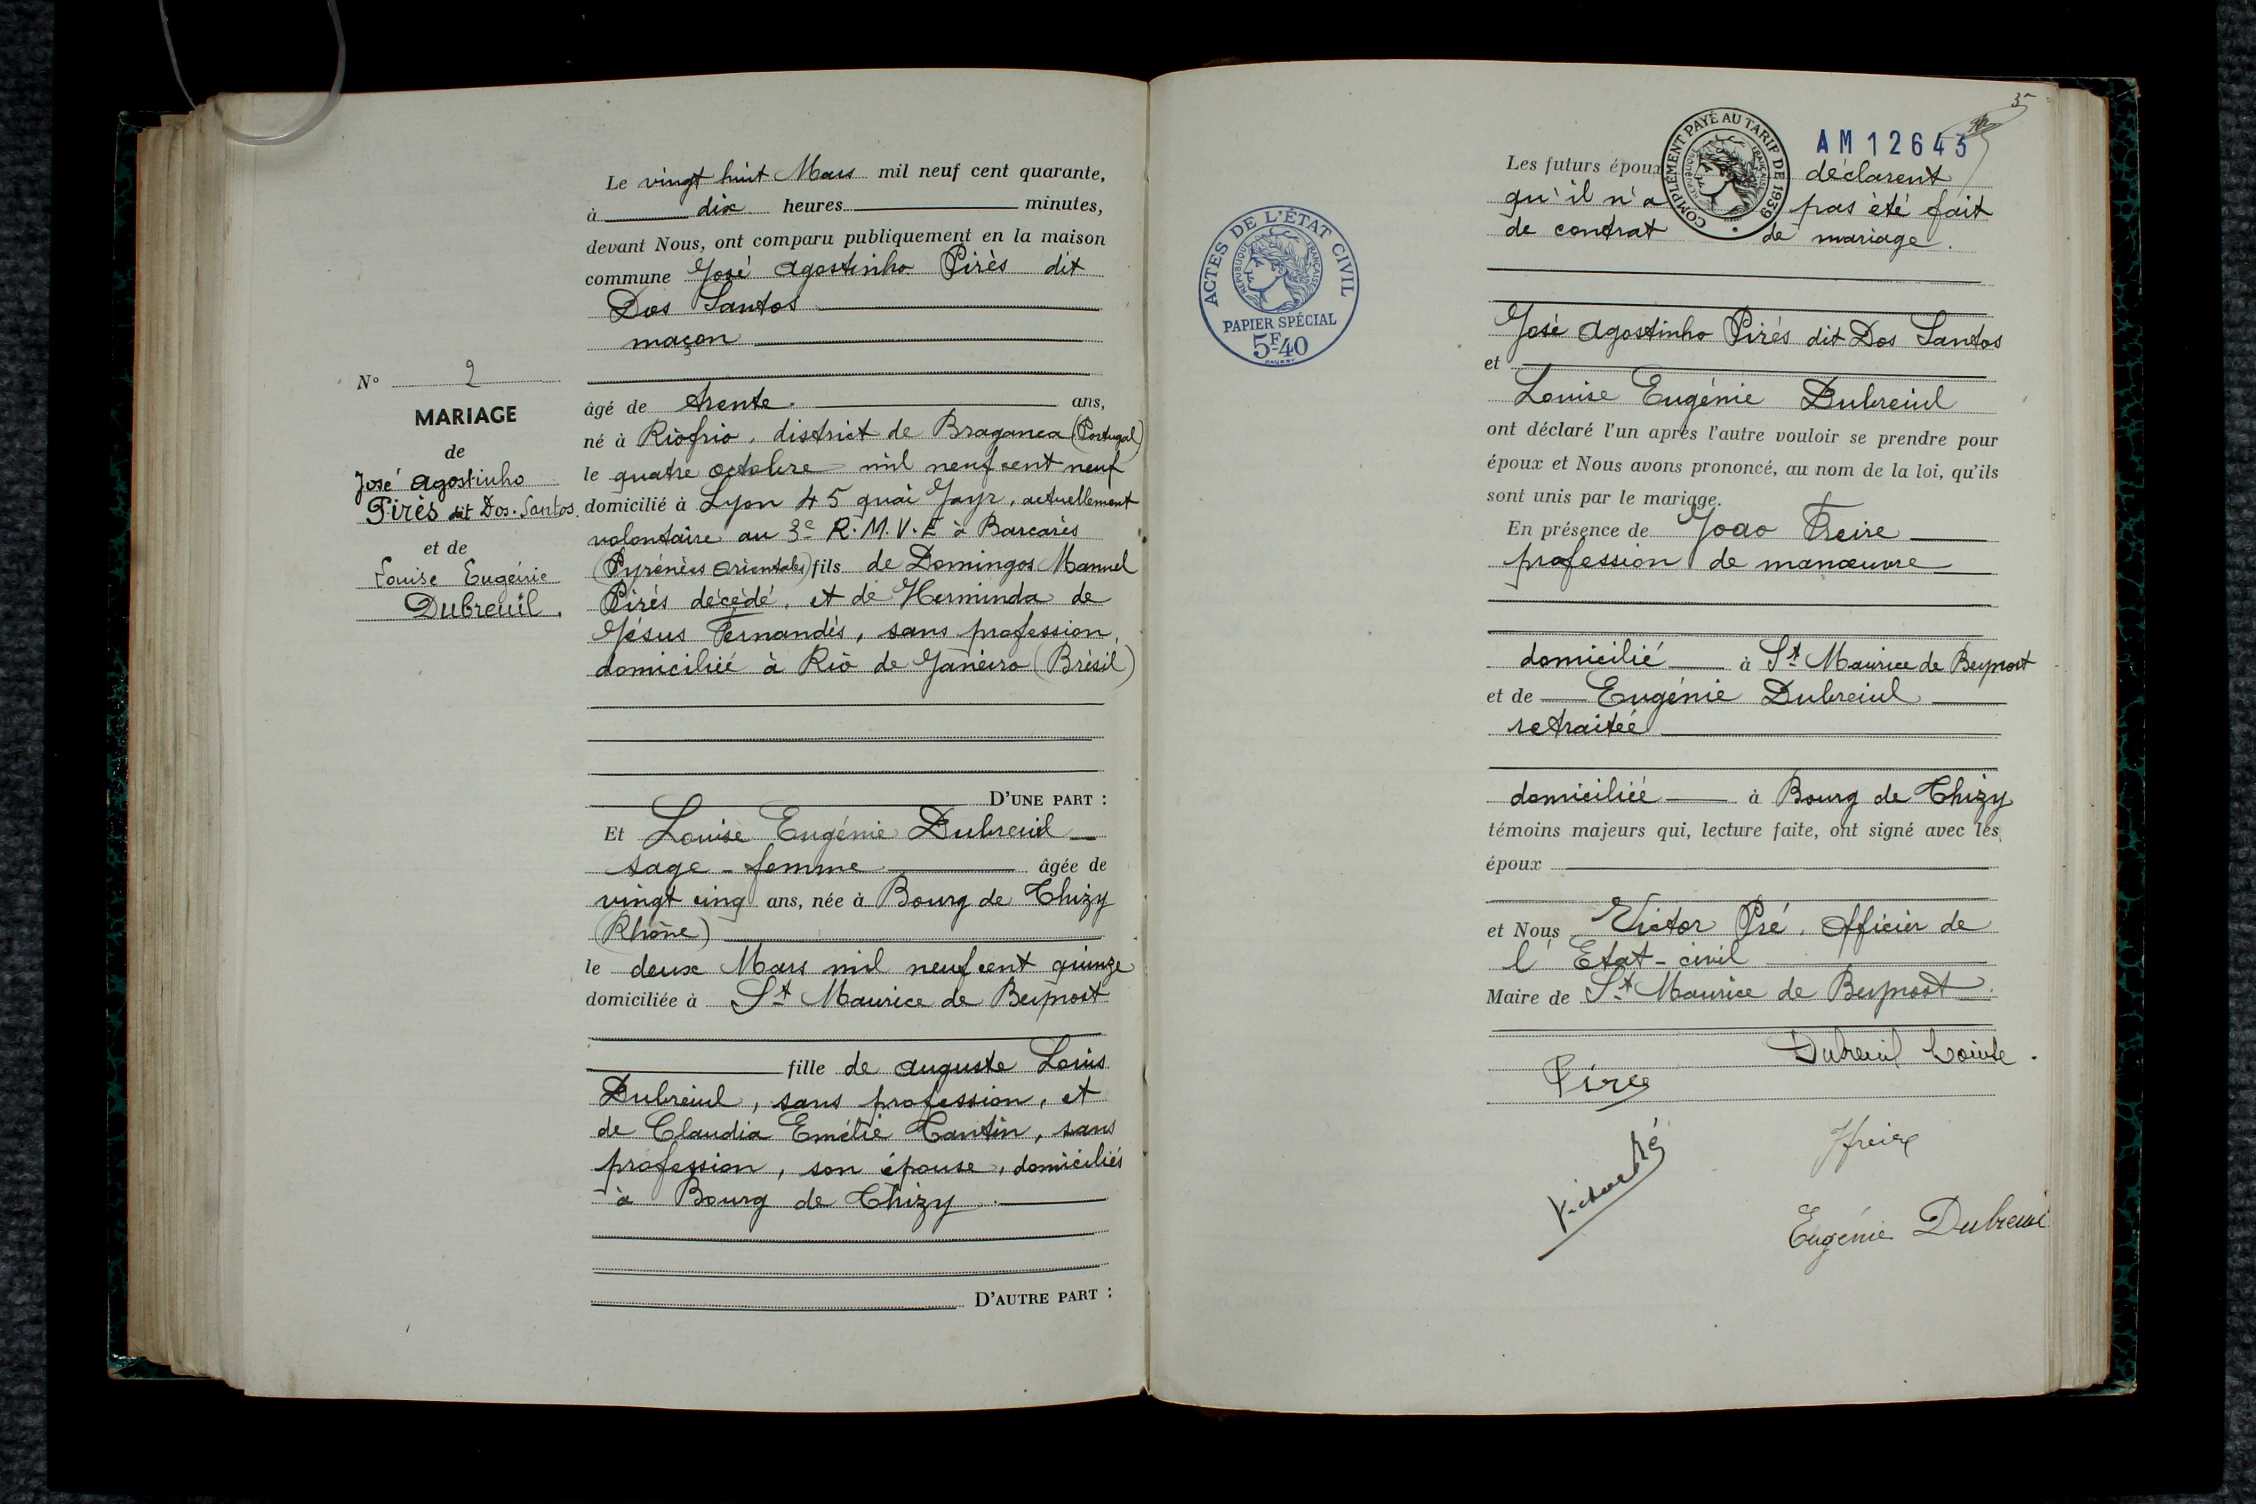 Le vingt huit Mars mil neuf cent quarante,
à dix heures minutes,
devant Nous, ont comparu publiquement en la maison
commune José Agostinho Pirès dit
Dos Santos
maçon
N° 2
MARIAGE
de
José Agostinho
Pirès dit Dos. Santos.
et de
Louise Eugénie
Dubreuil.
âgé de trente. ans,
né à Riofrio, district de Braganca (Portugal)
le quatre octobre mil neuf cent neuf
domicilié à Lyon 45 quai Jayr, actuellement
volontaire au 3e R.M.V.E à Barcarès
(Pyrénées Orientales) fils de Domingos Manuel
Pirés décédé, et de Herminda de
Jésus Fernandès, sans profession,
domiciliée à Rio de Janeiro (Brésil)
D'UNE PART :
Et Louise Eugénie Dubreuil
sage-femme âgée de
vingt cinq ans, née à Bourg de Thizy
(Rhône)
le deux Mars mil neuf cent quinze
domiciliée à St Maurice de Beynost
fille de Auguste Louis
Dubreuil, sans profession, et
de Claudia Emélie Cantin, sans
profession, son épouse, domiciliés
à Bourg de Thizy.
D'AUTRE PART :
ACTES DE L'ÉTAT CIVIL
RÉPUBLIQUE FRANÇAISE
PAPIER SPÉCIAL
5F40
3
COMPLÉMENT PAYÉ AU TARIF DE 1939
RÉPUBLIQUE FRANÇAISE
AM12643
Les futurs époux déclarent
qu'il n'a pas été fait
de contrat de mariage.
José Agostinho Pirés dit Dos Santos
et
Louise Eugénie Dubreuil
ont déclaré l'un après l'autre vouloir se prendre pour
époux et Nous avons prononcé, au nom de la loi, qu'ils
sont unis par le mariage.
En présence de Joao Freire
profession de manœuvre
domicilié à St Maurice de Beynost
et de Eugénie Dubreuil
retraitée
domiciliée à Bourg de Thizy
témoins majeurs qui, lecture faite, ont signé avec les
époux
et Nous Victor Pré, Officier de
l'Etat-civil
Maire de St Maurice de Beynost.
Dubreuil Louise.
Pires
Victor Pré
JFreire
Eugénie Dubreuil